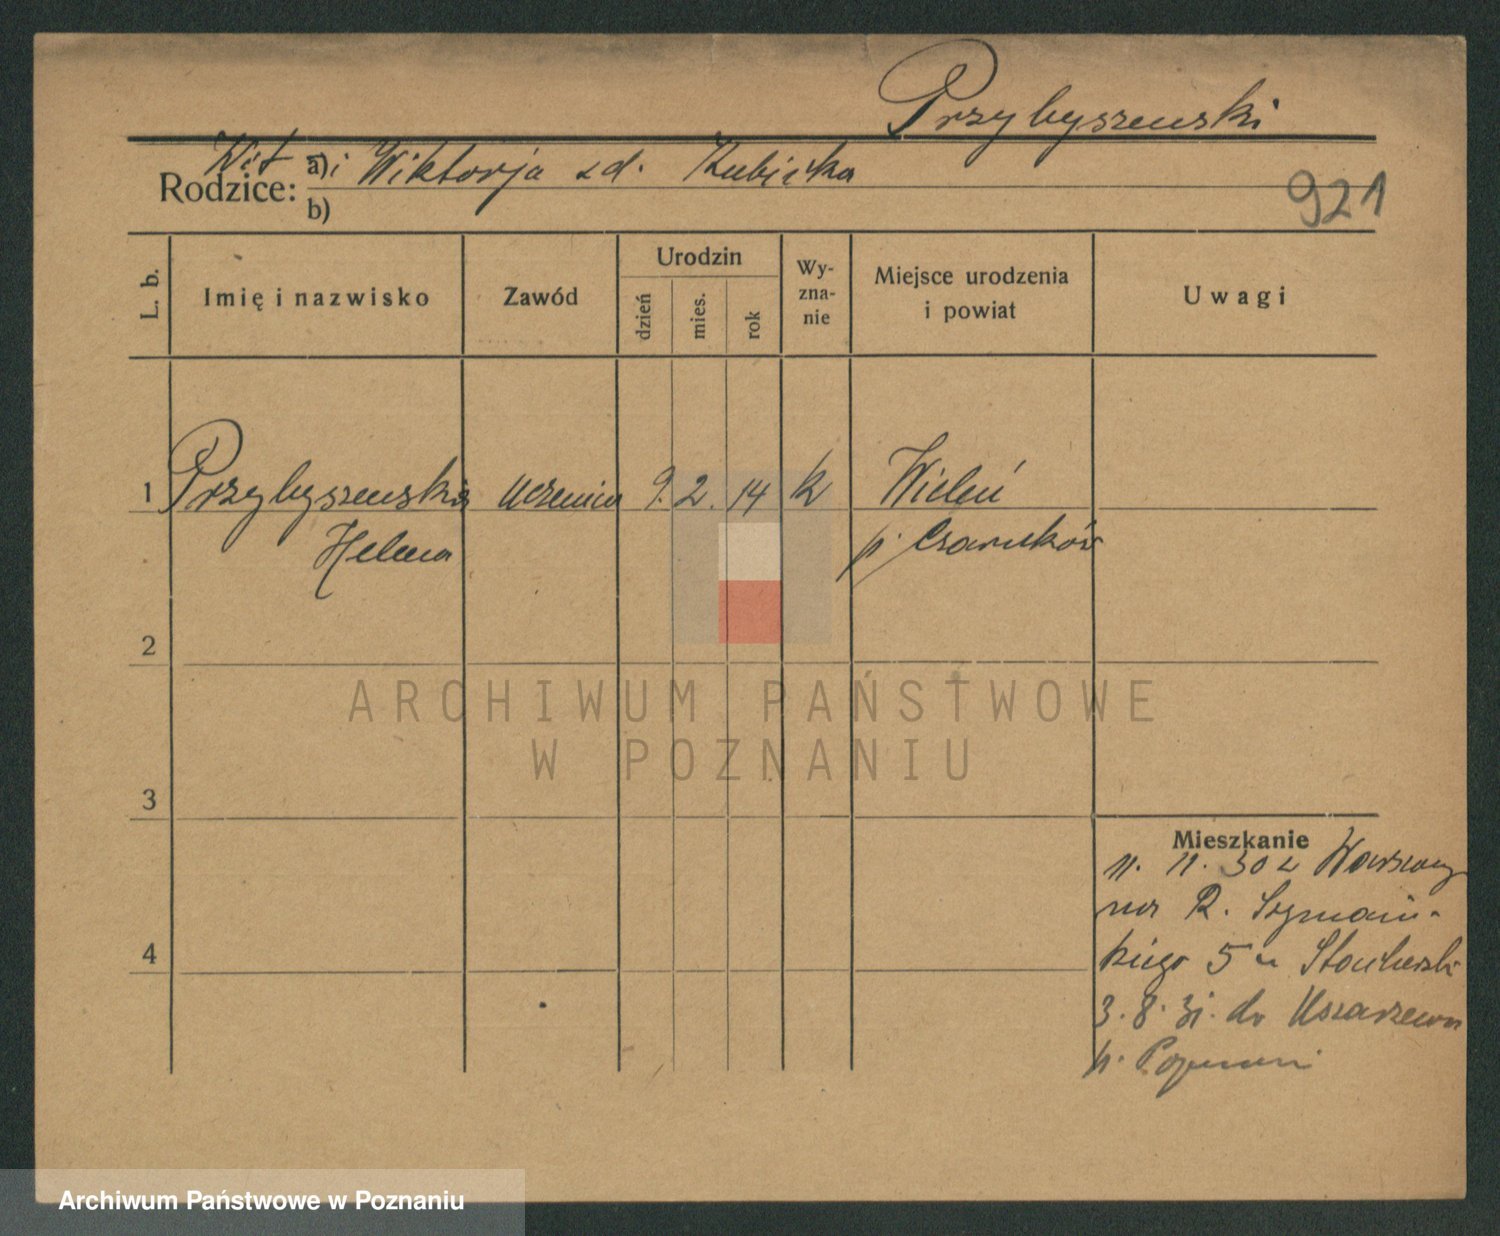 Przybyszewski
Wit i Wiktorja zd. Kubicka
Rodzice: a)
b)
921
L. b.
Imię i nazwisko
Zawód
Urodzin
dzień
mies.
rok
Wy-
zna-
nie
Miejsce urodzenia
i powiat
Uwagi
1 Przybyszewska uczenica 9. 2. 14 k Wieleń
Helena p. Czarnków
2
3
4
Mieszkanie
11. 11. 30 z Warszawy
na R. Szymań-
kiego 5 u
3. 8. 31. do Uzarzewa
p. Poznań
ARCHIWUM PAŃSTWOWE
W POZNANIU
Archiwum Państwowe w Poznaniu